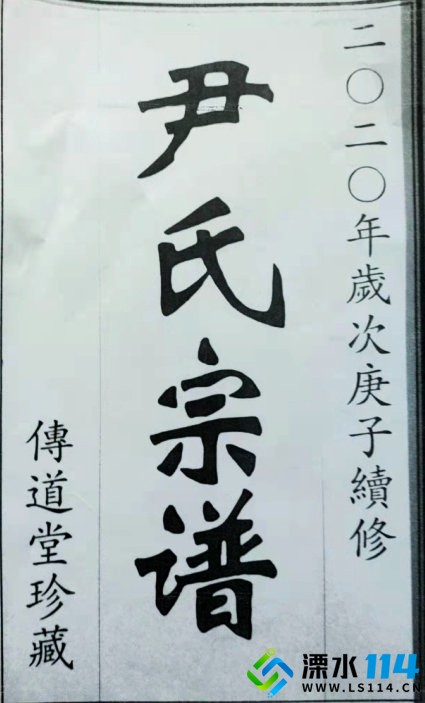 二〇二〇年歲次庚子續修
尹氏宗谱
傳道堂珍藏
溧水114
WWW.LS114.CN